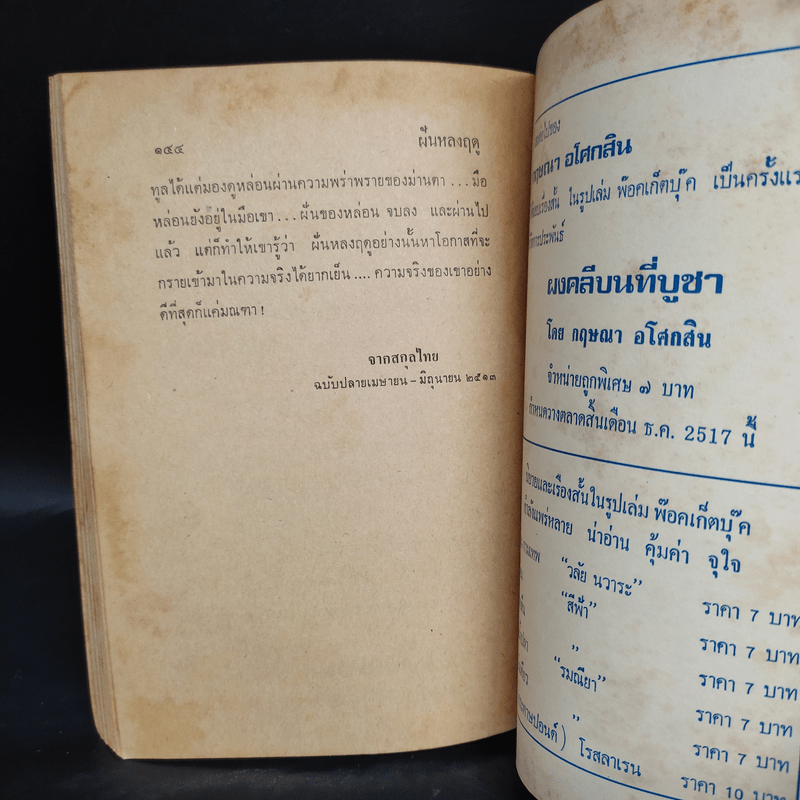 ๑๕๔ ฝันหลงฤดู
ทูลได้แต่มองดูหล่อนผ่านความพร่าพรายของม่านตา ... มือ
หล่อนยังอยู่ในมือเขา ... ฝันของหล่อน จบลง และผ่านไป
แล้ว แต่ก็ทำให้เขารู้ว่า ฝันหลงฤดูอย่างนั้นหาโอกาสที่จะ
กรายเข้ามาในความจริงได้ยากเย็น .... ความจริงของเขาอย่าง
ดีที่สุดก็แค่มณฑา !
จากสกุลไทย
ฉบับปลายเมษายน – มิถุนายน ๒๕๑๓
กฤษณา อโศกสิน
ในรูปเล่ม พ๊อคเก็ตบุ๊ค เป็นครั้งแร
ผงคลีบนที่บูชา
โดย กฤษณา อโศกสิน
จำหน่ายถูกพิเศษ ๗ บาท
กำหนดวางตลาดสิ้นเดือน ธ.ค. 2517 นี้
และเรื่องสั้นในรูปเล่ม พ๊อคเก็ตบุ๊ค
น่าอ่าน คุ้มค่า จุใจ
"วลัย นวาระ" ราคา 7 บาท
"สีฟ้า" ราคา 7 บาท
" ราคา 7 บาท
"รมณียา" ราคา 7 บาท
" ราคา 7 บาท
) โรสลาเรน ราคา 10 บาท